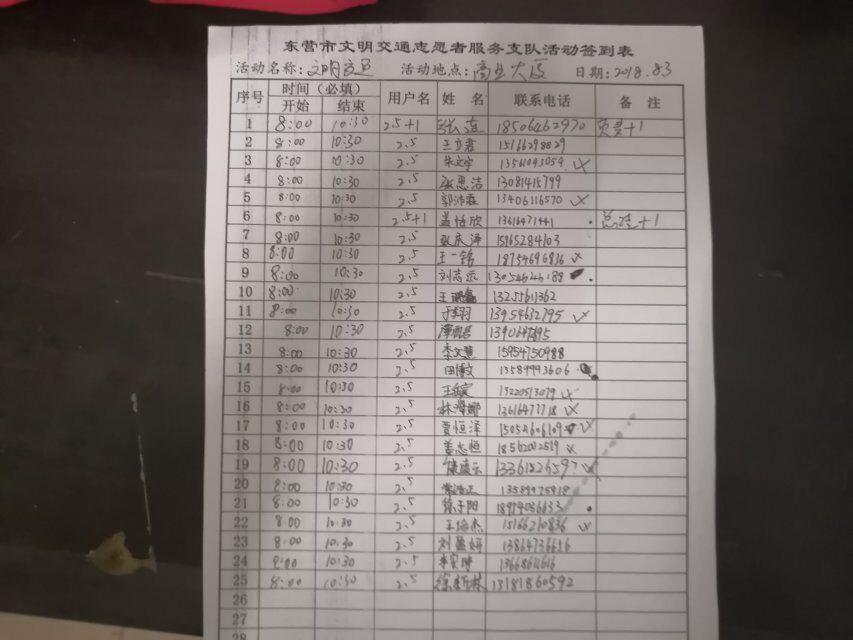 东营市文明交通志愿者服务支队活动签到表
活动名称: 文明交通 活动地点: 商业大厦 日期: 2018.8.3
序号 时间（必填） 用户名 姓 名 联系电话 备 注
开始 结束
1 8:00 10:30 2.5+1 18506462970 +1
2 8:00 10:30 2.5 15166298829
3 8:00 10:30 2.5 朱文宇 13561093059
4 8:00 10:30 2.5 张思洁 13081415799
5 8:00 10:30 2.5 郭沛霖 13406116570
6 8:00 10:30 2.5+1 盖恬欣 13616471441 +1
7 8:00 10:30 2.5 张庆泽 15965284103
8 8:00 10:30 2.5 王一铭 18754696836
9 8:00 10:30 2.5 刘志云
10 8:00 10:30 2.5 13255611362
11 8:00 10:30 2.5 于美羽 13954632795
12 8:00 10:30 2.5
13 8:00 10:30 2.5 李文慧 15954750988
14 8:00 10:30 2.5 田敏 13589993606
15 8:00 10:30 2.5 13220513079
16 8:00 10:30 2.5 13616477718
17 8:00 10:30 2.5 贾恒泽 15052606109
18 8:00 10:30 2.5 姜志恒 18562002519
19 8:00 10:30 2.5 13361526597
20 8:00 10:30 2.5 13589975918
21 8:00 10:30 2.5 徐子阳
22 8:00 10:30 2.5 15166210836
23 8:00 10:30 2.5 刘盈妍 13864736626
24 8:00 10:30 2.5
25 8:00 10:30 2.5 徐新林 13181860592
26
27
28